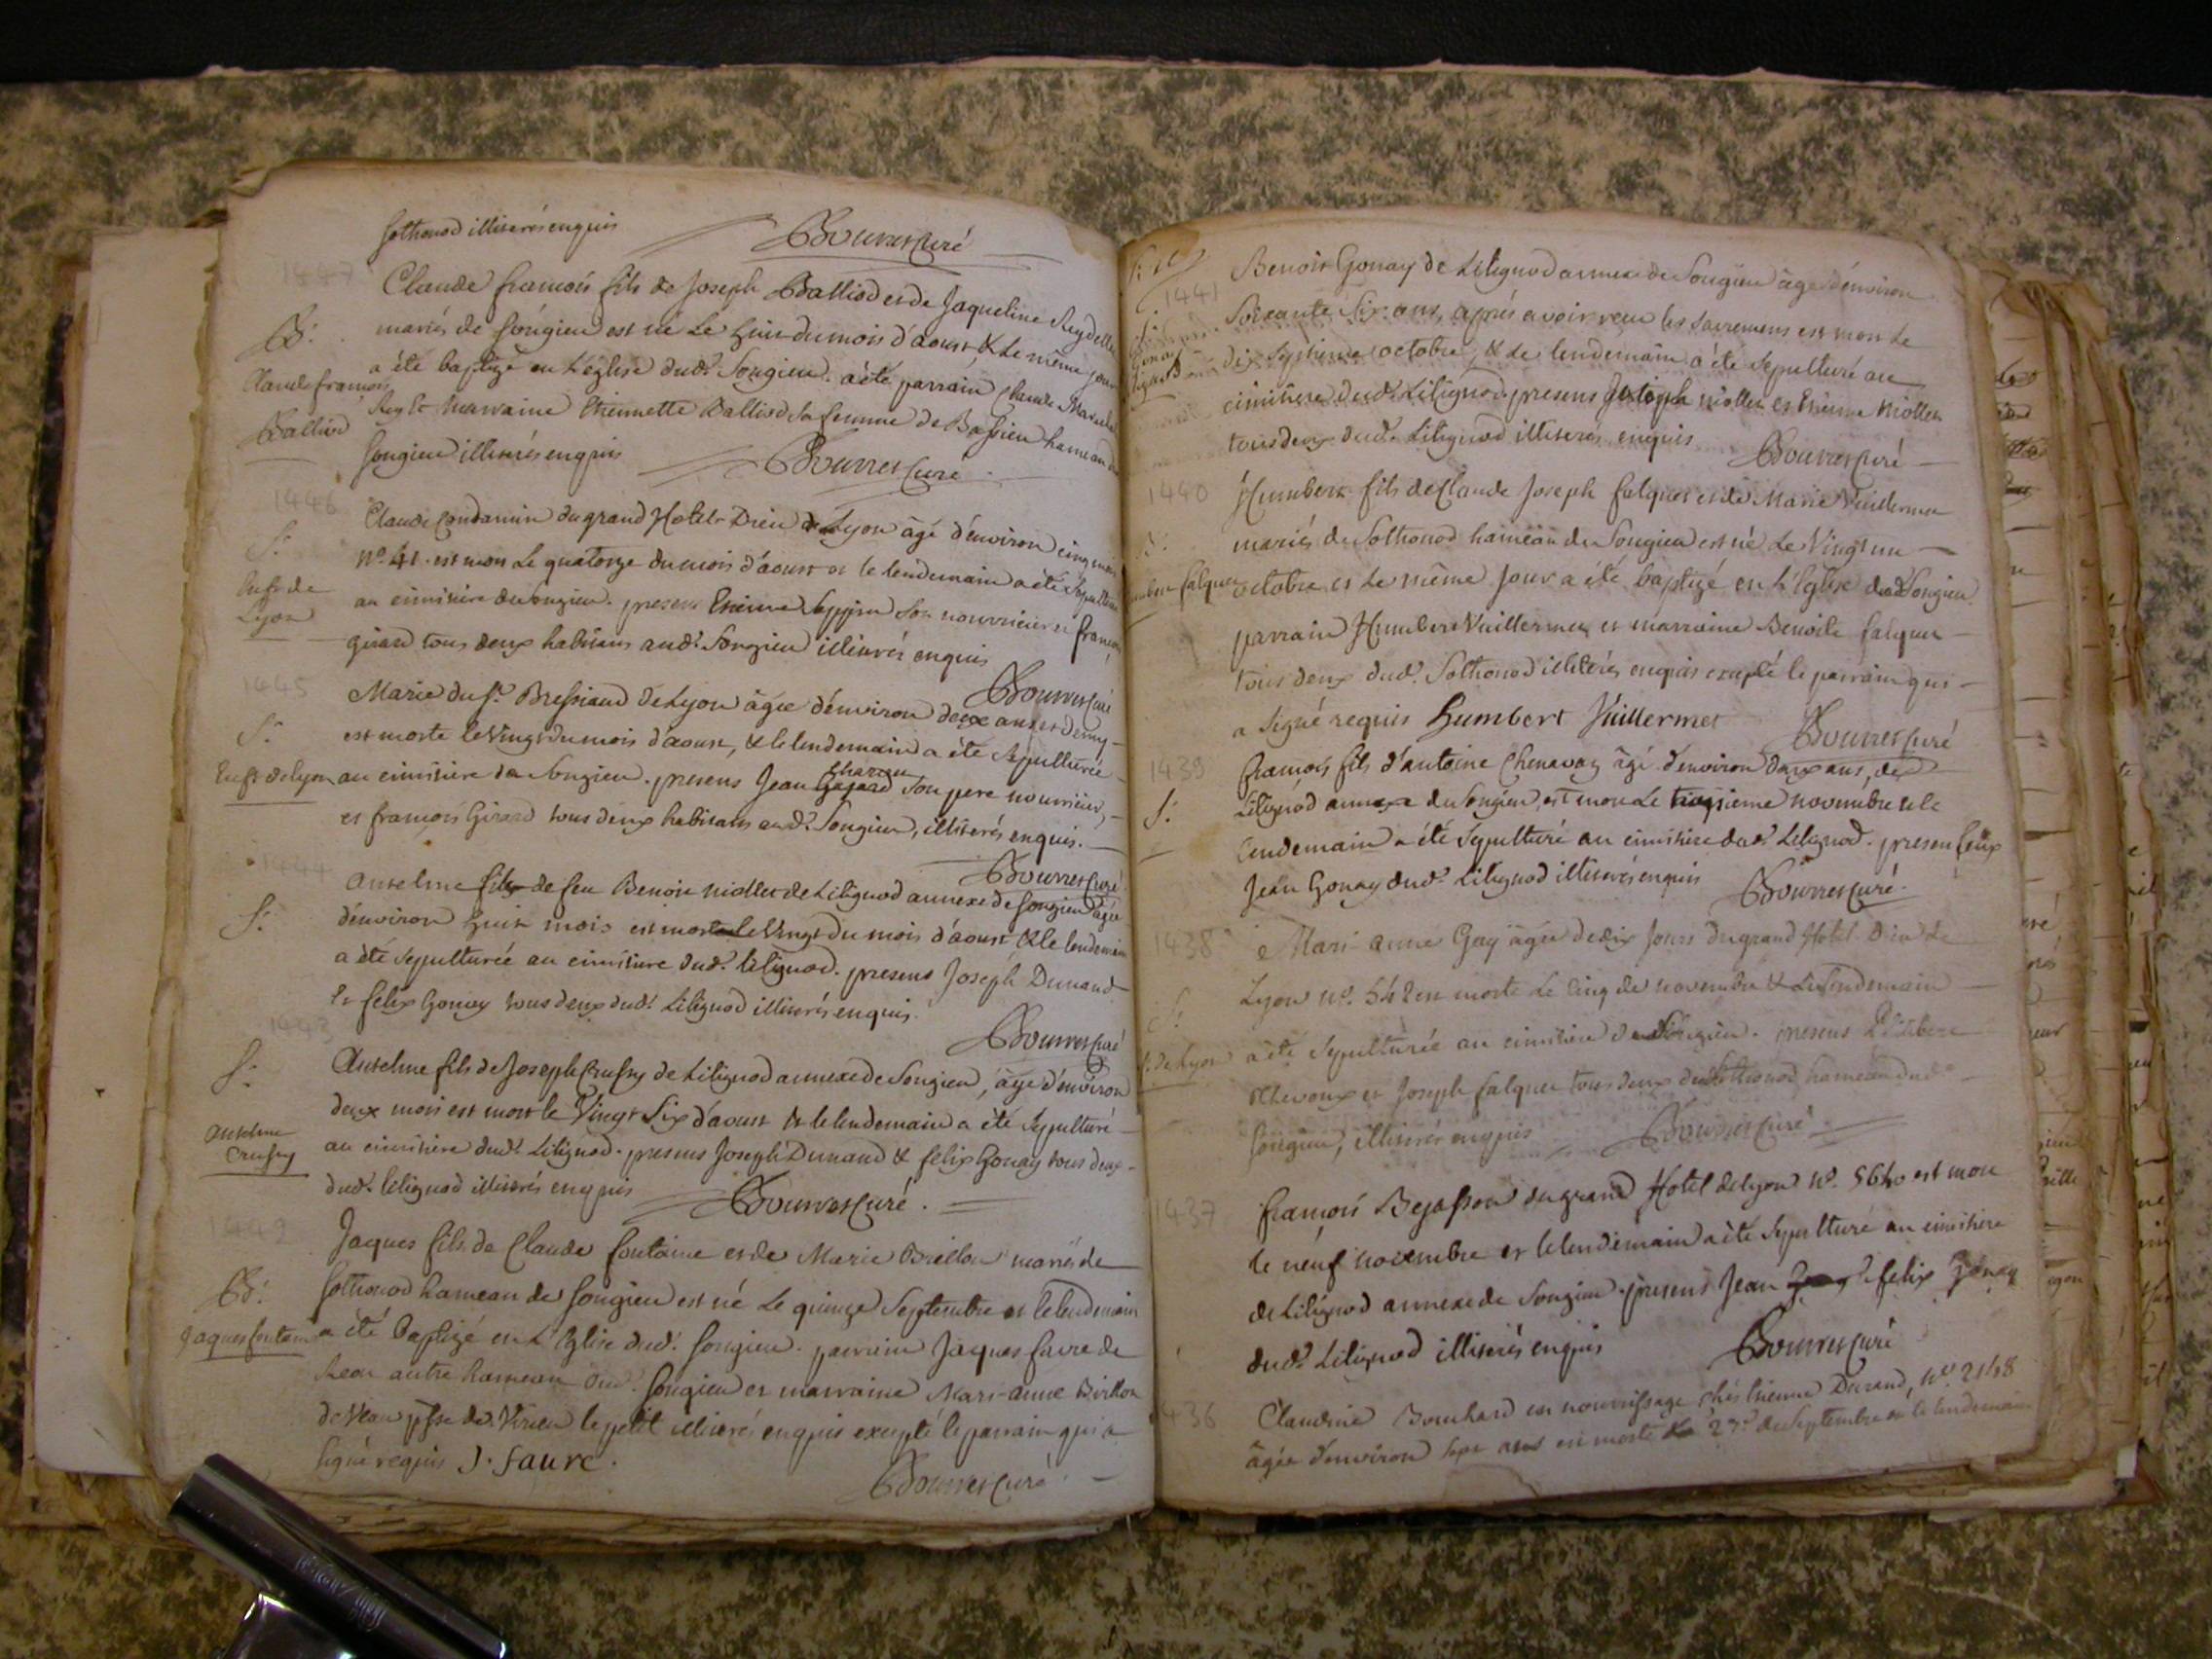 Sothonod illiterés enquis Bourret Curé
1447
Claude françois fils de Joseph Balliod et de Jaqueline Reydellet
mariés de songieu est né Le huit du mois d'aoust, & Le même jour
B:
a été baptizé en L'église dud. Songieu. a été parrain Claude
Claude françois
Balliod
marraine Etiennette Balliod sa femme de Bassieu hameau
songieu illiterés enquis Bourret Curé
1446
Claude Condamin du grand Hotel-Dieu de Lyon âgé d'environ cinq mois
S:
N.° 41. est mort Le quatorze du mois d'aoust et le lendemain a été sepulturé
Enft de
Lyon
au cimitiere de songieu. presens Etienne son nourricier et françois
girard tous deux habitans aud. Songieu illiterés enquis
Bourret Curé
1445
Marie du S.r Bressiand de Lyon âgée d'environ deux ans et demy
S:
est morte le Vingt du mois d'aoust, & le lendemain a été sepulturée
Enft de Lyon
au cimitiere de Songieu. presens Jean son pere nourricier,
et françois Girard tous deux habitans aud. Songieu, illiterés enquis.
Bourret Curé
1444
Anselme de feu Benoit miollet de Lilignod annexe de songieu âgée
S:
d'environ huit mois est le Vingt du mois d'aoust & le lendemain
a été sepulturée au cimitiere dud. lilignod. presens Joseph Dunand
Et felix Gonay tous deux dud. Lilignod illiterés enquis.
Bourret Curé
1443
S:
Anselme fils de Joseph Crussy de Lilignod annexe de Songieu, âgé d'environ
deux mois est mort le Vingt Six d'aoust & le lendemain a été sepulturé
Anselme
Crussy
au cimitiere dud. Lilignod. presens Joseph Dunand & felix Gonay tous deux
dud. lilignod illiterés enquis Bourret Curé.
Jaques fils de Claude fontaine et de Marie Brillon mariés de
B:
Sothonod hameau de songieu est né Le quinze Septembre et le lendemain
Jaques fontaine
a été baptizé en L'Eglise dud. songieu. parrain Jaques favre de
autre hameau dud. Songieu et marraine Mari-anne Brillon
de Virieu le petit illiterés enquis excepté le parrain qui a
signé requis J. faure.
Bourret Curé
1441
Benoit Gonay de Lilignod annexe de Songieu âgé d'environ
Soixante Six ans, après avoir reçu les sacremens est mort Le
dix septieme octobre, & le lendemain a été sepulturé au
cimitiere dud. Lilignod. presens Joseph miollet et Etienne Miollet
tous deux dud. Lilignod illiterés enquis Bourret Curé
1440
Humbert fils de Claude Joseph falquet et de Marie Vuillermet
mariés de Sothonod hameau de Songieu est né Le Vingt un
octobre et Le même Jour a été baptizé en L'Eglise dud. Songieu.
parrain Humbert Vuillermet et marraine Benoite falquet
tous deux dud. Sothonod illiterés enquis excepté le parrain qui
a signé requis Humbert Vuillermet Bourret Curé
1439
françois fils d'antoine Chenavay âgé d'environ deux ans, de
S:
Lilignod annexe de Songieu, est mort Le novembre & le
lendemain a été sepulturé au cimitiere dud. Lilignod. presens
Jean Gonay dud. Lilignod illiterés enquis Bourret Curé.
1438
Mari anne Gay âgée de dix Jours du grand Hotel Dieu de
S:
Lyon n.° 542 est morte Le cinq de novembre & Le lendemain
de Lyon
a été sepulturée au cimitiere de Songieu. presens
et Joseph falquet tous deux de Sothonod hameau dud.
Songieu, illiterés enquis Bourret Curé
1437
françois du grand Hotel de Lyon N.° est mort
le neuf novembre et le lendemain a été sepulturé au cimitiere
de Lilignod annexe de Songieu. presens Jean felix Gonay
dud. Lilignod illiterés enquis Bourret Curé
1436
Claudine Bouchard en nourrissage chés Etienne Durand, N.° 2148
âgée d'environ sept ans est morte Le 23.e de Septembre et le lendemain